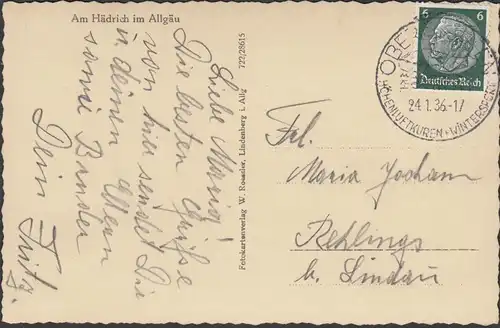 Am Hädrich im Allgäu
Liebe Maria!
Die besten Grüße
von hier sendet Dir
u. deinen Eltern
sowie Bruder
Dein Fritz.
Fotokartenverlag W. Roessler, Lindenberg i. Allg. 722/28615
6 6
Deutsches Reich
OBE
24.1.36.-17
HÖHENLUFTKUREN + WINTERSPORT
Frl.
Maria Jocham
Rehlings
b. Lindau